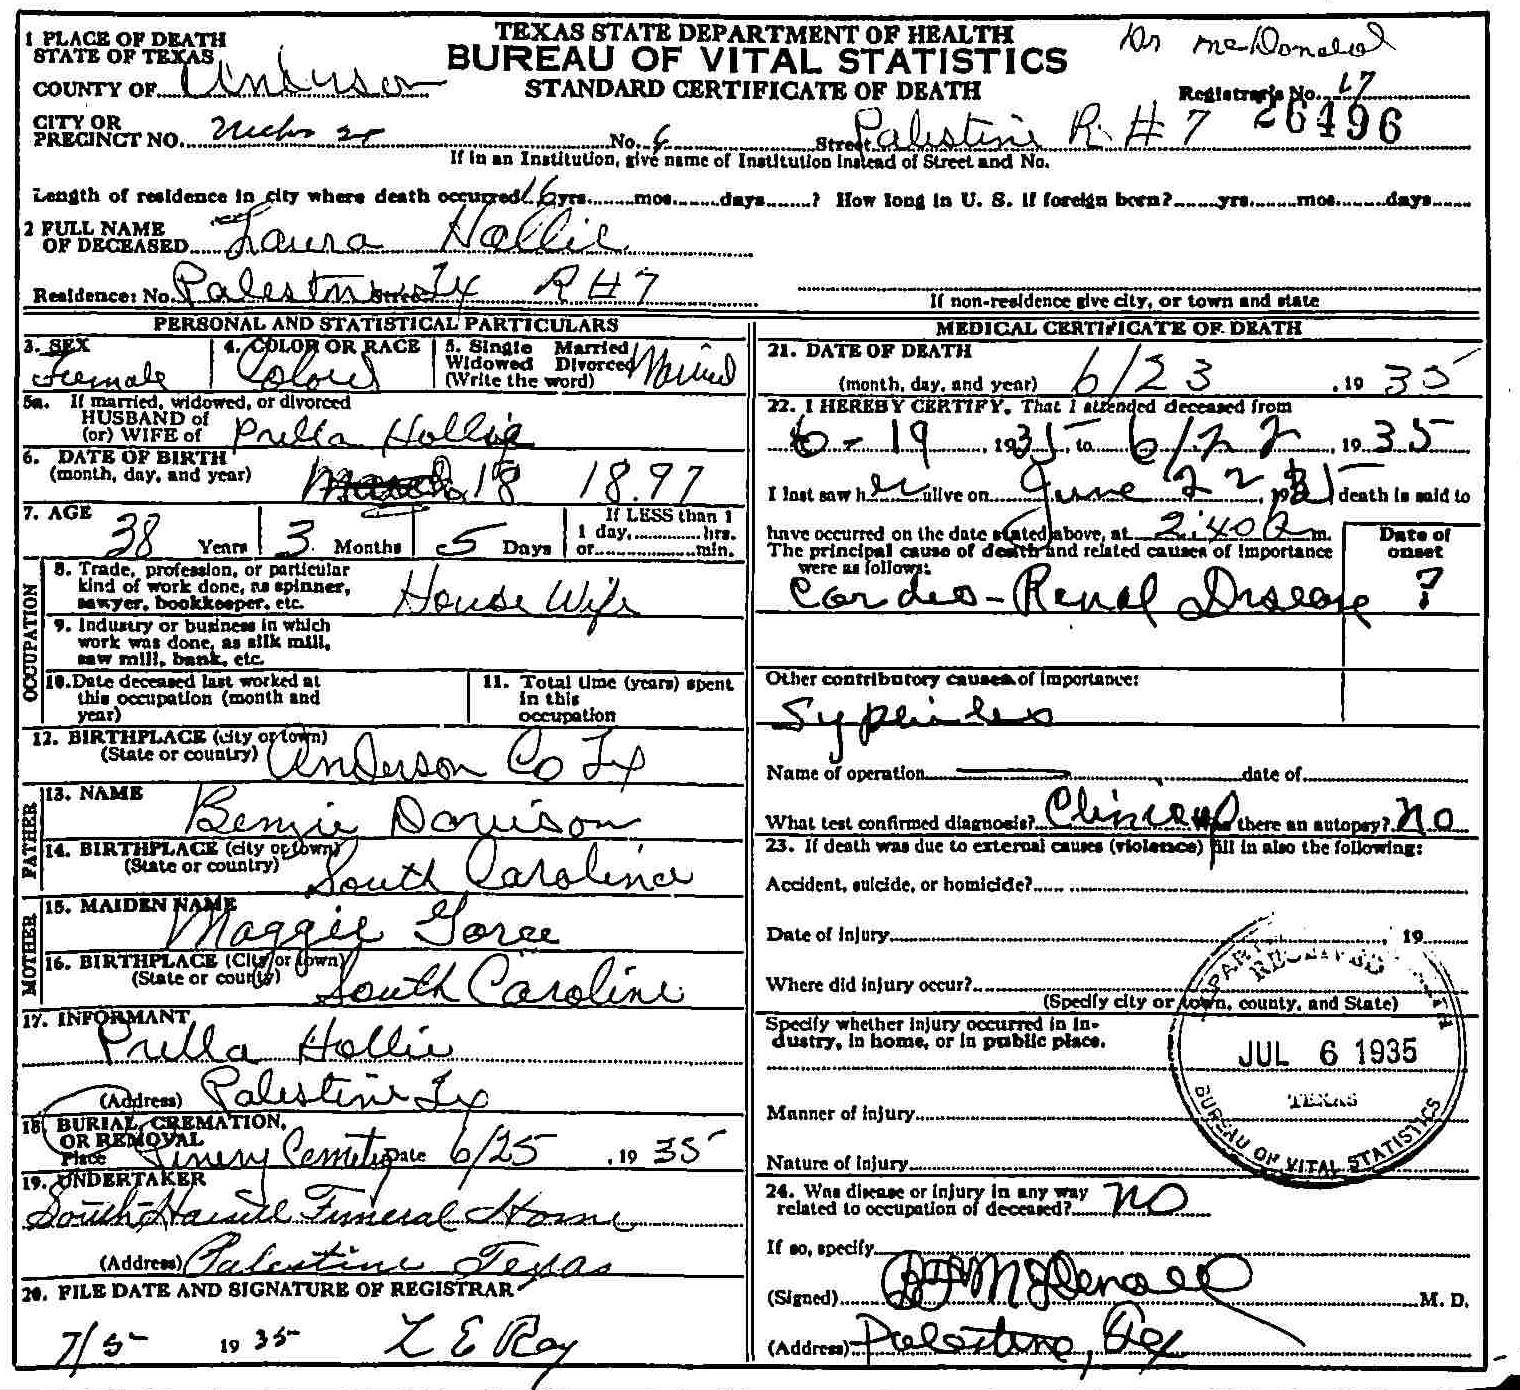 TEXAS STATE DEPARTMENT OF HEALTH
BUREAU OF VITAL STATISTICS
STANDARD CERTIFICATE OF DEATH
Dr McDonald
Registrar's No. 17
26496
1 PLACE OF DEATH
STATE OF TEXAS
COUNTY OF Anderson
CITY OR
PRECINCT NO. No. 6 Street Palestine R # 7
If in an Institution, give name of Institution instead of Street and No.
Length of residence in city where death occurred 16 yrs. mos. days ? How long in U. S. if foreign born? yrs. mos. days
2 FULL NAME
OF DECEASED Laura Hollie
Residence: No. Palestine Street Tx R # 7
If non-residence give city, or town and state
PERSONAL AND STATISTICAL PARTICULARS
3. SEX Female
4. COLOR OR RACE Colored
5. Single Married
Widowed Divorced
(Write the word) Married
5a. If married, widowed, or divorced
HUSBAND of
(or) WIFE of Prella Hollie
6. DATE OF BIRTH
(month, day, and year) March 18 1897
7. AGE 38 Years 3 Months 5 Days
If LESS than 1
1 day, hrs.
or min.
OCCUPATION
8. Trade, profession, or particular
kind of work done, as spinner,
sawyer, bookkeeper, etc. House Wife
9. Industry or business in which
work was done, as silk mill,
saw mill, bank, etc.
10. Date deceased last worked at
this occupation (month and
year)
11. Total time (years) spent
in this
occupation
12. BIRTHPLACE (city or town)
(State or country) Anderson Co Tx
FATHER
13. NAME Benzie Davison
14. BIRTHPLACE (city or town)
(State or country) South Carolina
MOTHER
15. MAIDEN NAME Maggie Goree
16. BIRTHPLACE (City or town)
(State or county) South Caroline
17. INFORMANT
Prella Hollie
(Address) Palestine Tx
18. BURIAL, CREMATION,
OR REMOVAL
Place Pinery Cemetry Date 6/25 , 19 35
19. UNDERTAKER
Funeral Home
(Address) Palestine Texas
20. FILE DATE AND SIGNATURE OF REGISTRAR
7/5 19 35 L E Ray
MEDICAL CERTIFICATE OF DEATH
21. DATE OF DEATH
(month, day, and year) 6/23 , 19 35
22. I HEREBY CERTIFY, That I attended deceased from
6-19 , 1935 to 6/22 , 1935
I last saw her alive on June 22, 1935 death is said to
have occurred on the date stated above, at 2:40 a m.
The principal cause of death and related causes of importance
were as follows:
Date of
onset
Cardeo-Renal Disease ?
Other contributory causes of importance:
Name of operation date of
What test confirmed diagnosis? Clinical Was there an autopsy? no
23. If death was due to external causes (violence) fill in also the following:
Accident, suicide, or homicide?
Date of injury , 19
Where did injury occur?
(Specify city or town, county, and State)
Specify whether injury occurred in in-
dustry, in home, or in public place.
Manner of injury
Nature of injury
RECEIVED
JUL 6 1935
TEXAS
BUREAU OF VITAL STATISTICS
24. Was disease or injury in any way
related to occupation of deceased? no
If so, specify
(Signed) M. D.
(Address) Palestine, Tex